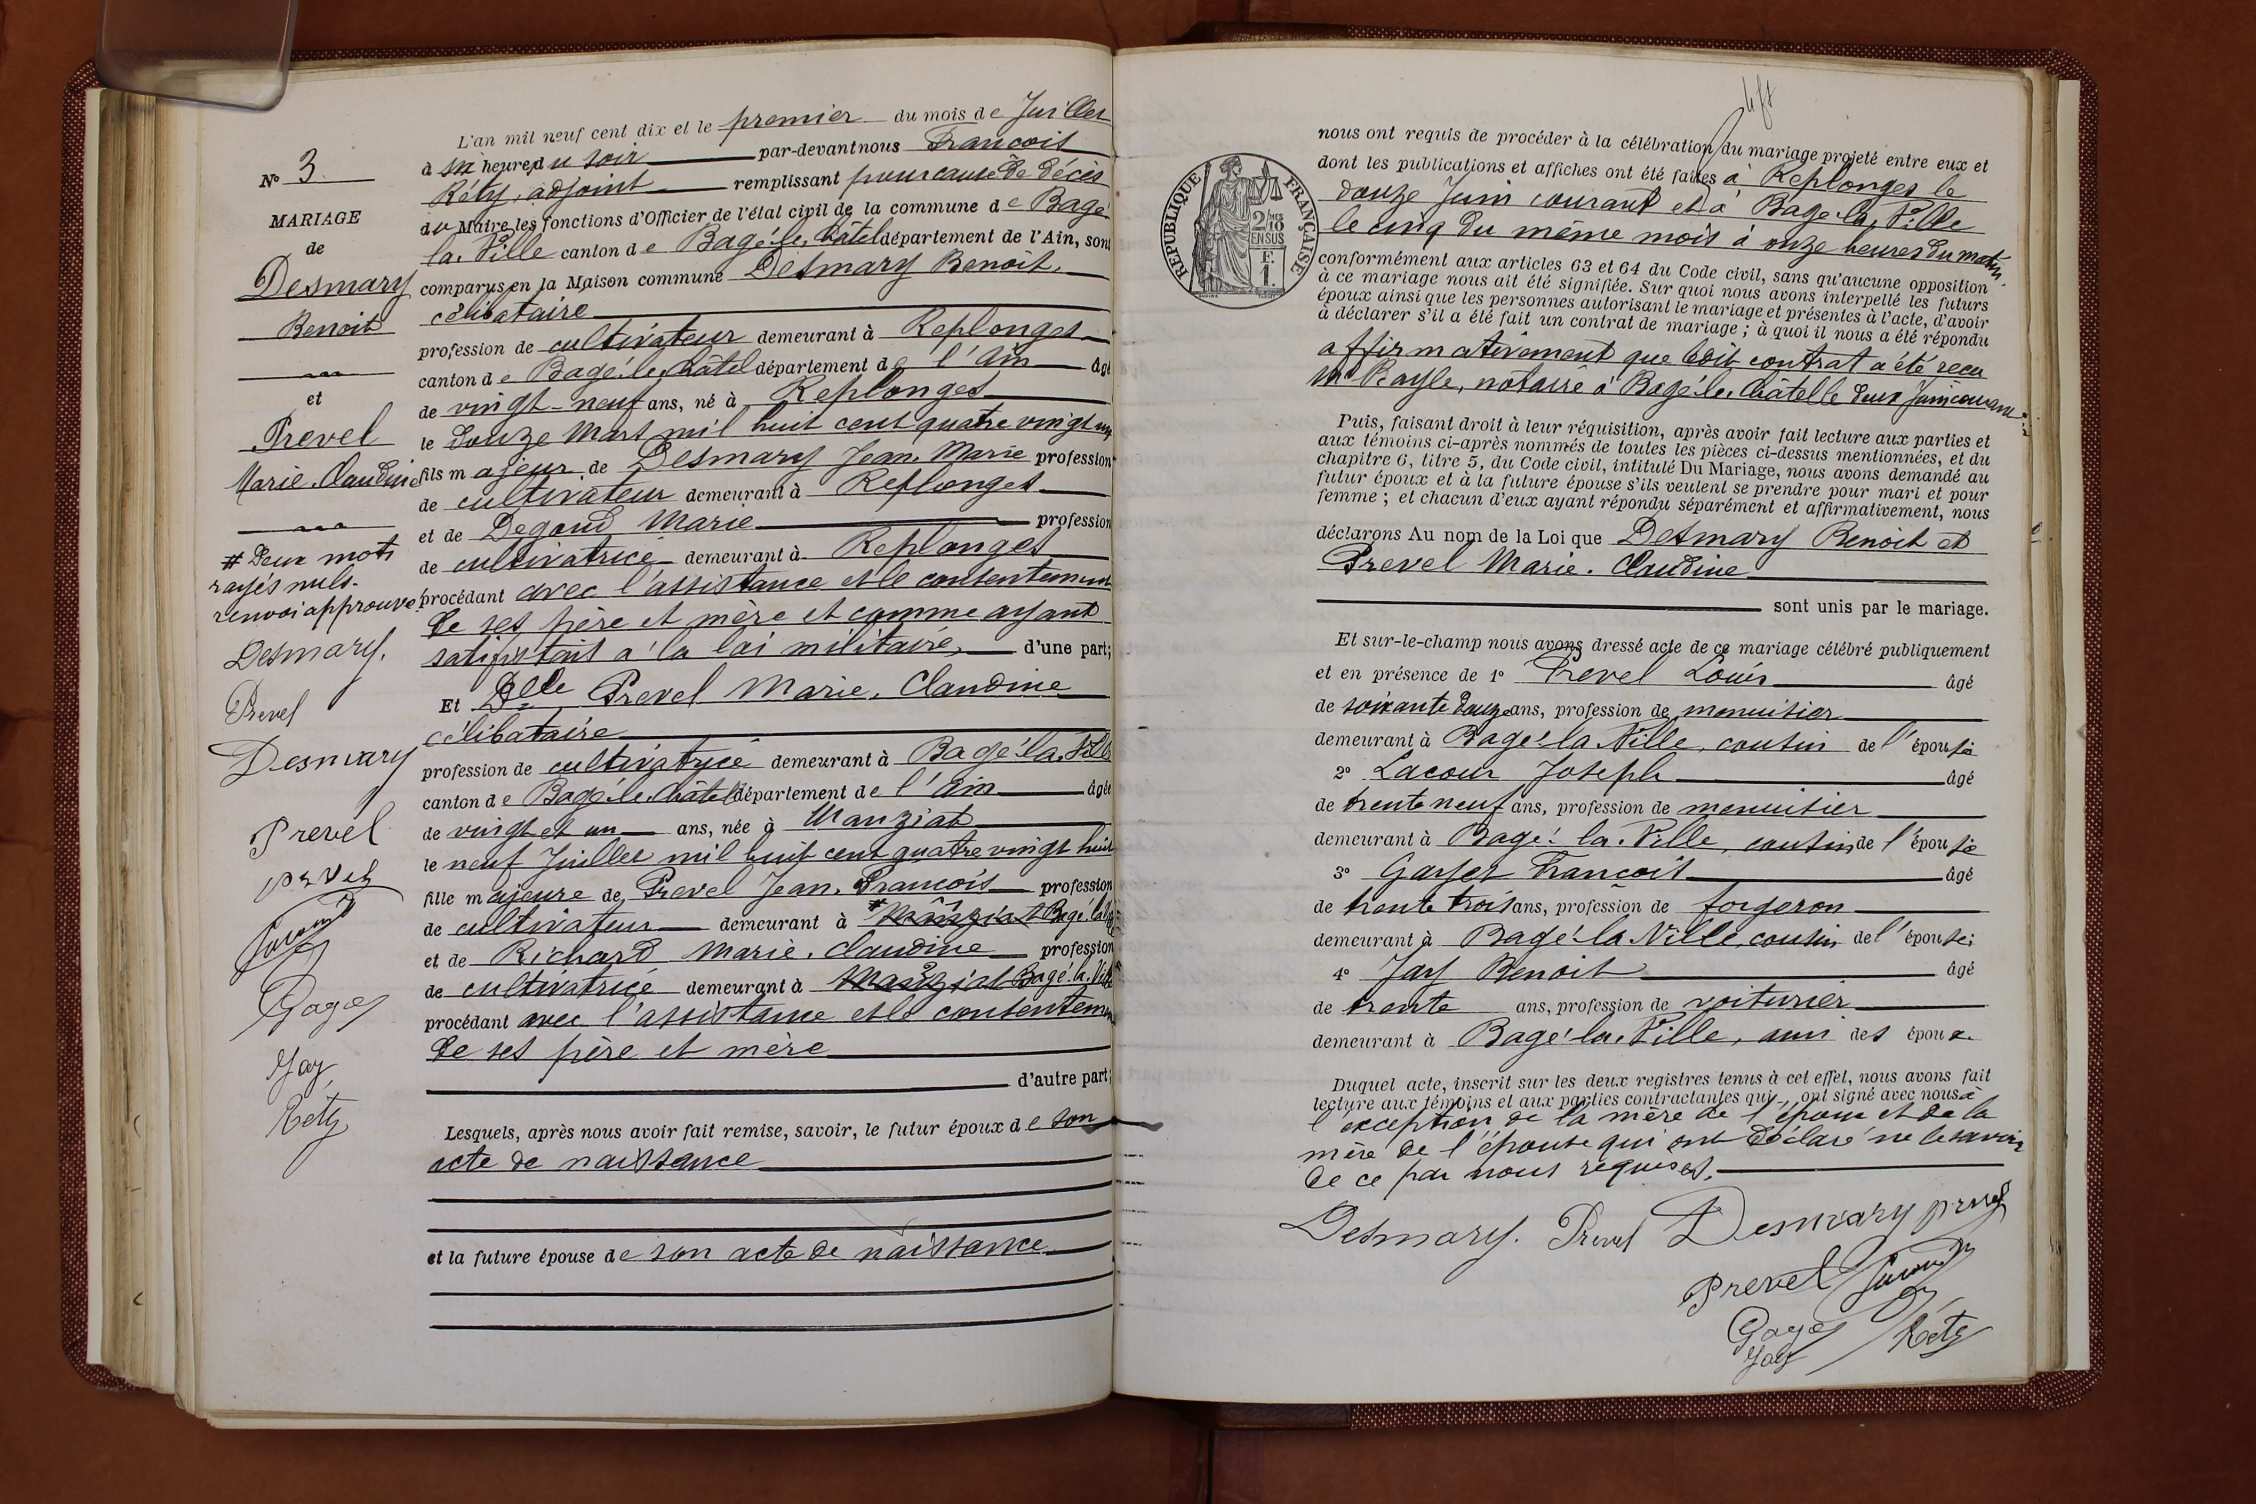 N° 3
MARIAGE
de
Desmary
Benoit
et
Prevel
Marie-Claudine
# Deux mots
rayés nuls.
renvoi approuvé
Desmary.
Prevel
Desmary
Prevel
prevel
Gager
Jay
Réty
L'an mil neuf cent dix et le premier du mois de Juillet
à six heures du soir par-devant nous François
Réty, adjoint remplissant pour cause de décès
du Maire les fonctions d'Officier de l'état civil de la commune de Bagé-
la-Ville canton de Bagé-le-Châtel département de l'Ain, sont
comparus en la Maison commune Desmary Benoit,
célibataire
profession de cultivateur demeurant à Replonges
canton de Bagé-le-Châtel département de l'Ain âgé
de vingt-neuf ans, né à Replonges
le douze Mars mil huit cent quatre vingt un
fils majeur de Desmary Jean-Marie profession
de cultivateur demeurant à Replonges
et de Degoud Marie profession
de cultivatrice demeurant à Replonges
procédant avec l'assistance et le consentement
de ses père et mère et comme ayant
satisfait à la loi militaire, d'une part;
Et Delle Prevel Marie-Claudine
célibataire
profession de cultivatrice demeurant à Bagé-la-Ville
canton de Bagé-le-Châtel département de l'Ain âgée
de vingt et un ans, née à Manziat
le neuf Juillet mil huit cent quatre vingt huit
fille majeure de Prevel Jean-François profession
de cultivateur demeurant à # Manziat Bagé-la-Ville
et de Richard Marie-Claudine profession
de cultivatrice demeurant à Manziat Bagé-la-Ville
procédant avec l'assistance et le consentement
de ses père et mère
d'autre part;
Lesquels, après nous avoir fait remise, savoir, le futur époux de son
acte de naissance
et la future épouse de son acte de naissance
RÉPUBLIQUE FRANÇAISE
2/10 EN SUS
F. 1.
nous ont requis de procéder à la célébration du mariage projeté entre eux et
dont les publications et affiches ont été faites à Replonges le
douze Juin courant et à Bagé-la-Ville
le cinq du même mois à onze heures du matin
conformément aux articles 63 et 64 du Code civil, sans qu'aucune opposition
à ce mariage nous ait été signifiée. Sur quoi nous avons interpellé les futurs
époux ainsi que les personnes autorisant le mariage et présentes à l'acte, d'avoir
à déclarer s'il a été fait un contrat de mariage ; à quoi il nous a été répondu
affirmativement que ledit contrat a été reçu
Me Rayle, notaire à Bagé-le-Châtel le deux Juin courant
Puis, faisant droit à leur réquisition, après avoir fait lecture aux parties et
aux témoins ci-après nommés de toutes les pièces ci-dessus mentionnées, et du
chapitre 6, titre 5, du Code civil, intitulé Du Mariage, nous avons demandé au
futur époux et à la future épouse s'ils veulent se prendre pour mari et pour
femme ; et chacun d'eux ayant répondu séparément et affirmativement, nous
déclarons Au nom de la Loi que Desmary Benoit et
Prevel Marie-Claudine
sont unis par le mariage.
Et sur-le-champ nous avons dressé acte de ce mariage célébré publiquement
et en présence de 1° Prevel Louis âgé
de soixante douze ans, profession de menuisier
demeurant à Bagé-la-Ville, cousin de l'épouse
2° Lacour Joseph âgé
de trente neuf ans, profession de menuisier
demeurant à Bagé-la-Ville, cousin de l'épouse
3° Gayer François âgé
de trente trois ans, profession de forgeron
demeurant à Bagé-la-Ville, cousin de l'épouse;
4° Jay Benoit âgé
de trente ans, profession de voiturier
demeurant à Bagé-la-Ville, ami des époux.
Duquel acte, inscrit sur les deux registres tenus à cet effet, nous avons fait
lecture aux témoins et aux parties contractantes qui ont signé avec nous à
l'exception de la mère de l'époux et de la
mère de l'épouse qui ont déclaré ne le savoir
de ce par nous requises.
Desmary. Prevel Desmary prevel
Prevel
Gager Réty
Jay